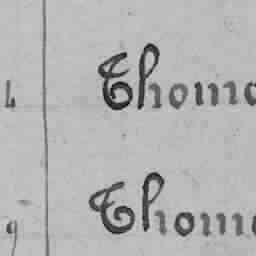 4 Thoma
9 Thoma